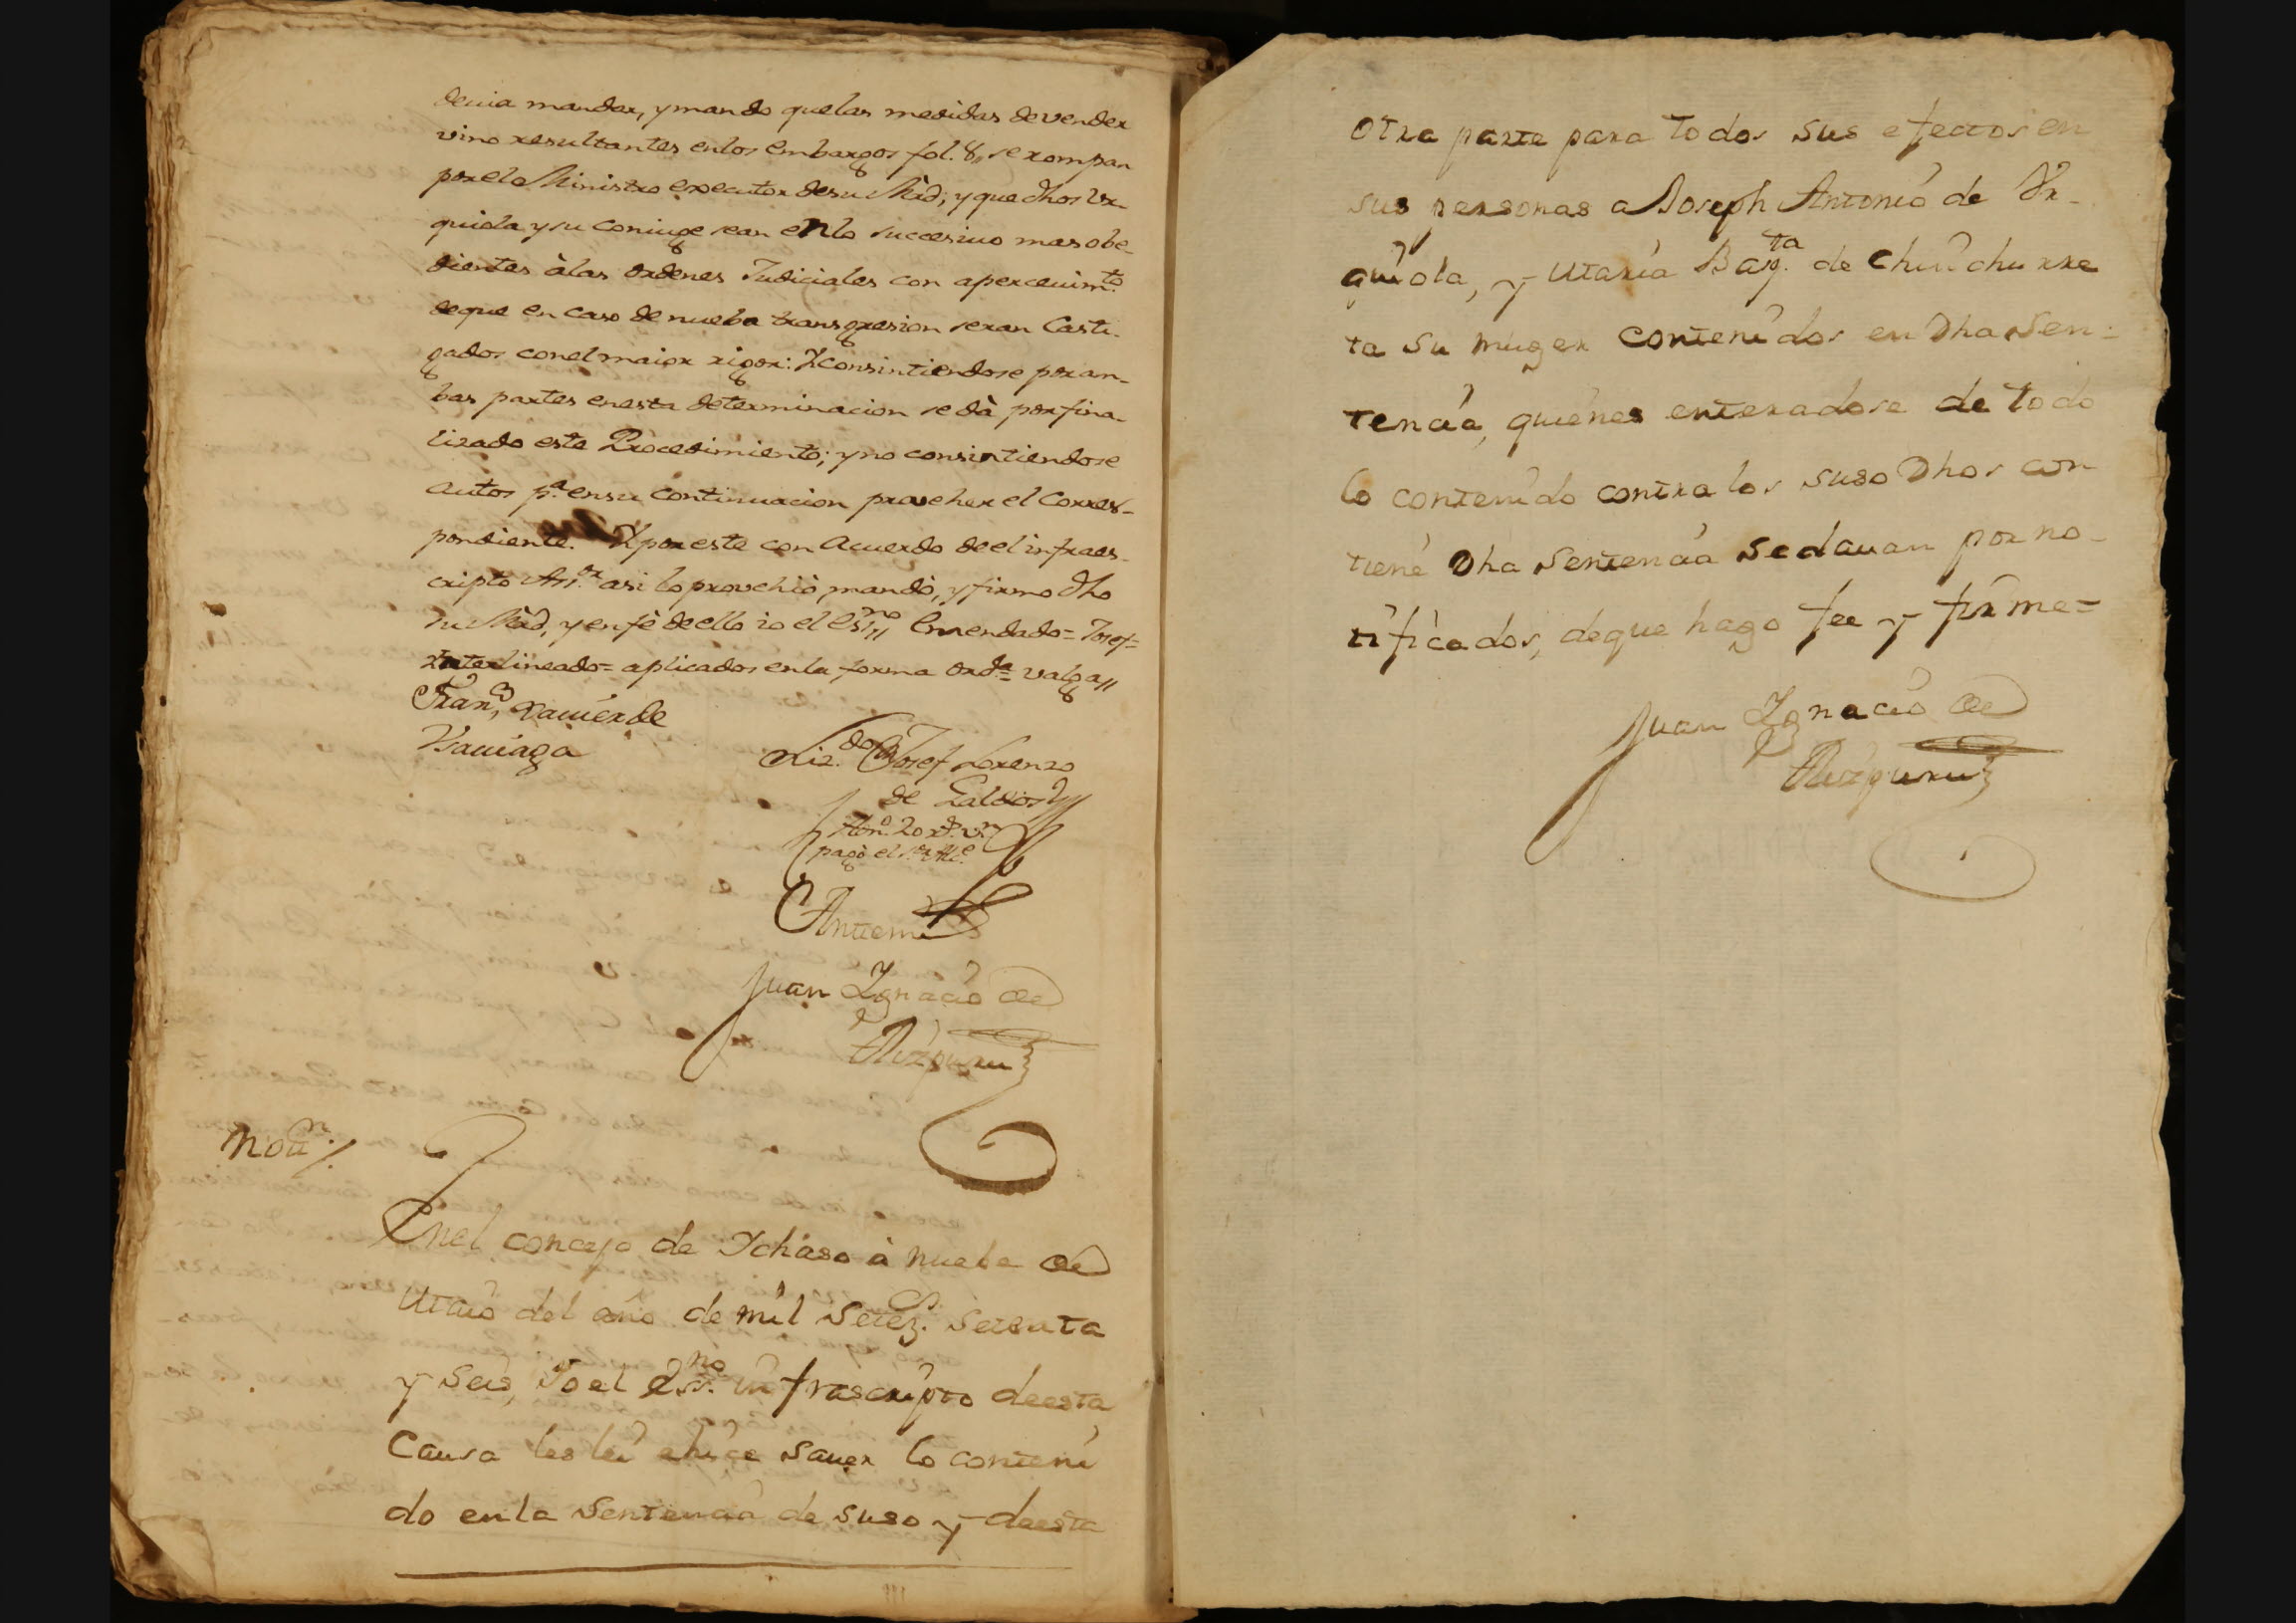 devia mandar, y mando que las medidas de vender
vino resultantes en los embargos fol. 8, se rompan
por el Ministro executor de su Mrd, y que dhos Ur-
quiola y su coniuge sean en lo succesiuo mas obe-
dientes à las ordenes Judiciales con aperceuim.to
de que en caso de nueba transgresion seran Casti-
gados con el maior rigor: Y consintiendose por am-
bas partes en esta determinacion se dà por fina-
lizado este Procedimiento; y no consintiendose
autos p.a en su continuacion proveher el Corres-
pondiente. Y por este con Acuerdo de el infraes-
cripto As.or asi lo provehiò, mandò, y firmo dho
su Mrd, y en fè de ello io el es.no Enmendado= Josef=
Interlineado= aplicados en la forma ord.a= valga
Fran.co Xauier de
Usauiaga
Liz.do Josef Lorenzo
de Galdos
Hon.o 20 r.s v.n
pagò el s.r Alc.e
Antemi
Juan Ygnacio de
Aizpuru
Not.n
En el concejo de Ychaso à nuebe de
Maio del año de mil Setez.s Setenta
y Seis, Yo el Ess.no infrascripto de esta
Causa les lei e hice sauer lo conteni
do en la Sentencia de suso y de esta
otra parte para todos sus efectos en
sus personas a Joseph Antonio de Ur-
quiola, y Maria Bap.ta de Chinchurre
ta su muger contenidos en dha Sen-
tencia, quienes enteradose de todo
lo contenido contra los suso dhos con
tiene dha Sentencia se dauan por no-
tificados, de que hago fee y firme=
Juan Ygnacio de
Aizpuru